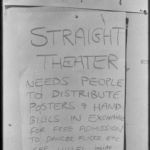 STRAIGHT
THEATER
NEEDS PEOPLE
TO DISTRIBUTE
POSTERS & HAND-
BILLS IN EXCHANGE
FOR FREE ADMISSION
TO DANCES PLACES ETC